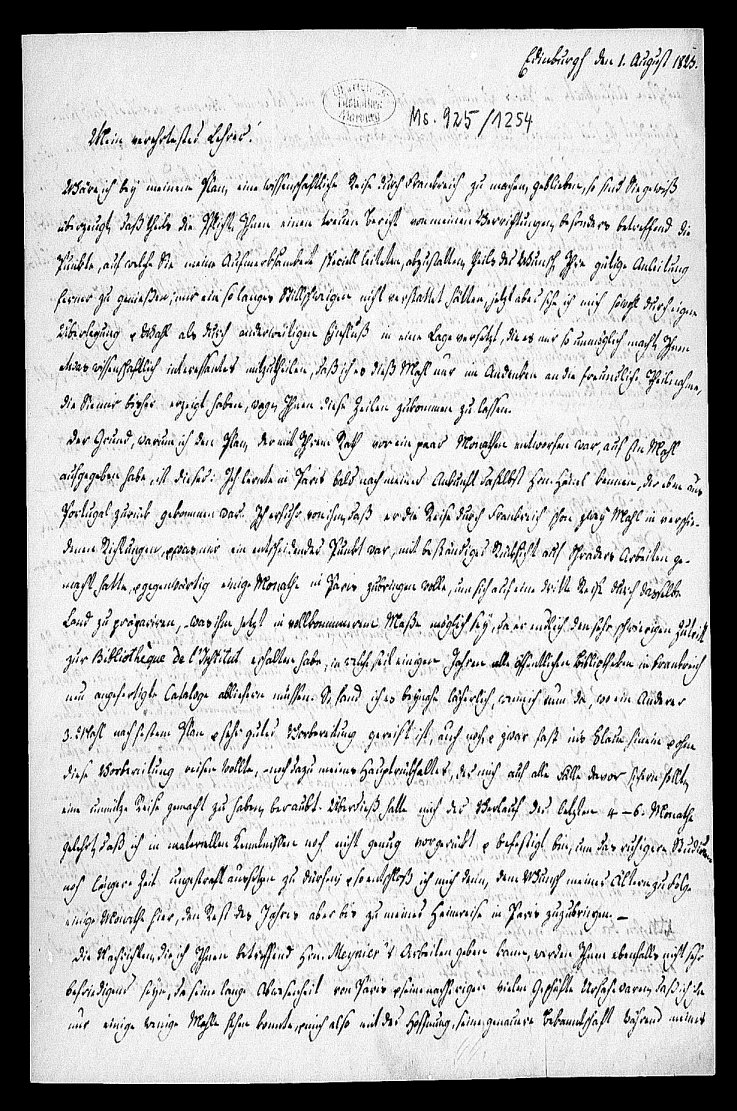 Edinburgh den 1. August 1823.
Ms. 925/1254
Mein verehrtester Lehrer!
Wäre ich bey meinem Plan, eine wissenschaftliche Reise durch Frankreich zu machen, geblieben, so sind Sie gewiß
überzeugt, daß theils die Pflicht, Ihnen einen treuen Bericht von meinen Verrichtungen, besonders betreffend die
Punkte, auf welche Sie meine Aufmerksamkeit speciell leiteten, abzustatten, theils der Wunsch, Ihre gütige Anleitung
ferner zu genießen, mir ein so langes Stillschweigen nicht verstattet hätten, jetzt aber sehe ich mich sowohl durch eigne
Überlegung u Wahl als durch anderweitigen Einfluß in eine Lage versetzt, die es mir so unmöglich macht, Ihnen
etwas wissenschaftlich interessantes mitzutheilen, daß ich es dieß Mahl nur im Andenken an die freundliche Theilnahme,
die Sie mir bisher erzeigt haben, wage, Ihnen diese Zeilen zukommen zu lassen.
Der Grund, warum ich den Plan, der mit Ihrem Rath vor ein paar Monathen entworfen war, auf Ein Mahl
aufgegeben habe, ist dieser: Ich lernte in Paris bald nach meiner Ankunft daselbst Hrn. Hänel kennen, der eben aus
Portugal zurück gekommen war. Ich erfuhr von ihm, daß er die Reise durch Frankreich schon zwey Mahl in verschie-
denen Richtungen, u was mir ein entscheidender Punkt war, mit beständiger Rücksicht auf Schraders Arbeiten ge-
macht hatte, u gegenwärtig einige Monathe in Paris zubringen wolle, um sich auf eine dritte Reise durch dasselbe
Land zu präpariren, was ihm jetzt in vollkommnerem Maße möglich sey, da er endlich den sehr schwierigen Zutritt
zur Bibliothèque de l'Institut erhalten habe, in welche seit einigen Jahren alle öffentlichen Bibliotheken in Frankreich
neu angefertigte Cataloge abliefern müssen. So fand ich es beynahe lächerlich, wenn ich nun da, wo ein Anderer
3. Mahl nach festem Plan u sehr guter Vorbereitung gereist ist, auch noch, u zwar fast ins Blaue hinein u ohne
diese Vorbereitung reisen wollte, noch dazu meines Hauptrückhaltes, der mich auf alle Fälle davor sichern sollte,
eine unnütze Reise gemacht zu haben, beraubt. Überdieß hatte mich der Verlauf der letzten 4–6. Monathe
gelehrt, daß ich in materiellen Kenntnissen noch nicht genug vorgerückt u befestigt bin, um das ruhigere Studiren
noch längere Zeit ungestraft aussetzen zu dürfen; u so entschloß ich mich denn, dem Wunsch meiner Ältern zu Folge
einige Monathe hier, den Rest des Jahres aber bis zu meiner Heimreise in Paris zuzubringen. –
Die Nachrichten, die ich Ihnen betreffend Hrn. Meynier's Arbeiten geben kann, werden Ihnen ebenfalls nicht sehr
befriedigend seyn, da seine lange Abwesenheit von Paris u seine nachherigen vielen Geschäfte Ursache waren, daß ich ihn
nur einige wenige Mahle sehen konnte, u mich also mit der Hoffnung, seine genauere Bekanntschaft während meines